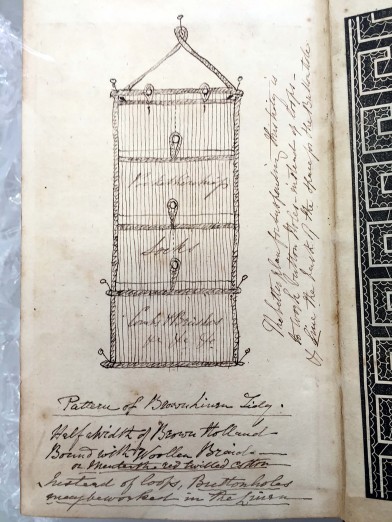 Socks
Combs & Brushes
&c &c &c
Pattern of Brown Linen Tidy.
Half a Width of Brown Holland
Bound with Woollen Braid
or Membeth red twilled cotton
Instead of loops, Buttonholes
may be worked in the Linen
The better plan for hanging this tidy is
to work button holes instead of loops
& line the back of the